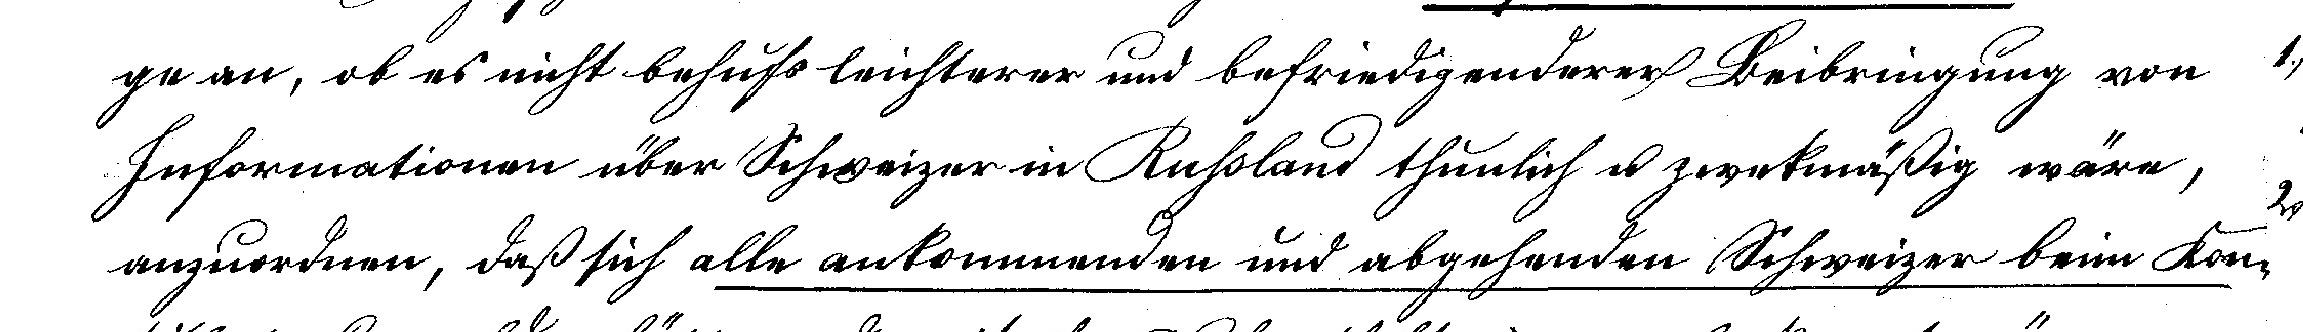 ge an, ob es nicht behufs leichterer und befriedigenderer Beibringung von
Informationen über Schweizer in Rußland thunlich u zwekmäßig wäre,
anzuordnen, daß sich alle ankommenden und abgehenden Schweizer beim Kon-